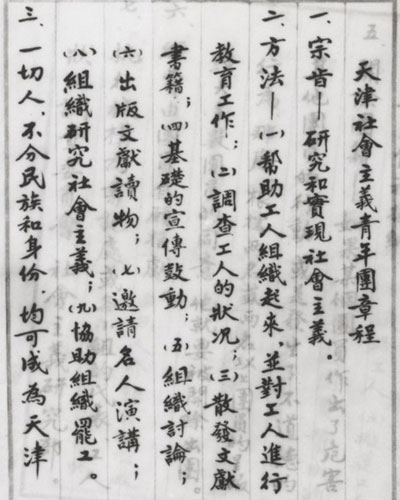 天津社會主義青年團章程
一、宗旨—研究和實現社會主義。
二、方法—(一)幫助工人組織起來，並對工人進行
教育工作；(二)調查工人的狀况；(三)散發文獻
書籍；(四)基礎的宣傳鼓動；(五)組織討論；
(六)出版文獻讀物；(七)邀請名人演講；
(八)組織研究社會主義；(九)協助組織罷工。
三、一切人，不分民族和身份，均可成為天津